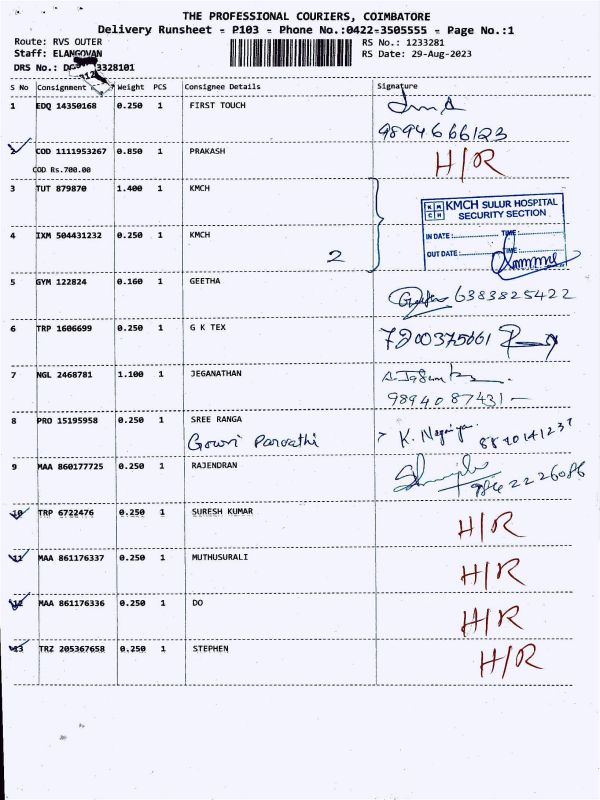 THE PROFESSIONAL COURIERS, COIMBATORE
Delivery Runsheet - P103 - Phone No.:0422-3505555 - Page No.:1
Route: RVS OUTER RS No.: 1233281
Staff: ELANGOVAN RS Date: 29-Aug-2023
DRS No.: 3328101
S No Consignment Weight PCS Consignee Details Signature
1 EDQ 14350168 0.250 1 FIRST TOUCH
9894666123
2 COD 1111953267 0.850 1 PRAKASH H/R
COD Rs.700.00
3 TUT 879870 1.400 1 KMCH
KMCH SULUR HOSPITAL
SECURITY SECTION
IN DATE: TIME:
OUT DATE: TIME:
4 IXM 504431232 0.250 1 KMCH
2
5 GYM 122824 0.160 1 GEETHA
6383825422
6 TRP 1606699 0.250 1 G K TEX
7200375661
7 NGL 2468781 1.100 1 JEGANATHAN
9894087431
8 PRO 15195958 0.250 1 SREE RANGA
Gowri Parvathi
9 MAA 860177725 0.250 1 RAJENDRAN
9842226086
10 TRP 6722476 0.250 1 SURESH KUMAR H/R
11 MAA 861176337 0.250 1 MUTHUSURALI H/R
12 MAA 861176336 0.250 1 DO H/R
13 TRZ 205367658 0.250 1 STEPHEN H/R